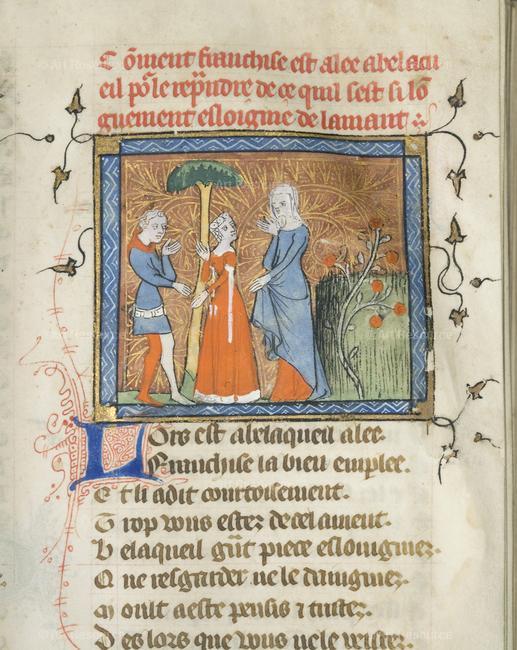 Cōment franchise est alee a bel acu
eil pōr le rep̄ndre de ce quil sest si lō
guement esloignie de lamant
Lors est a bel aqueil alee.
Franchise la bien emplee.
Et li a dit courtoisement.
Trop vous estez de cel ament.
Belaqueil gn̄t piece eslongniez.
Q ne resgarder ne le daingniez.
Moult a este pensis ⁊ tristez.
Des lors que vous ne le veistez.